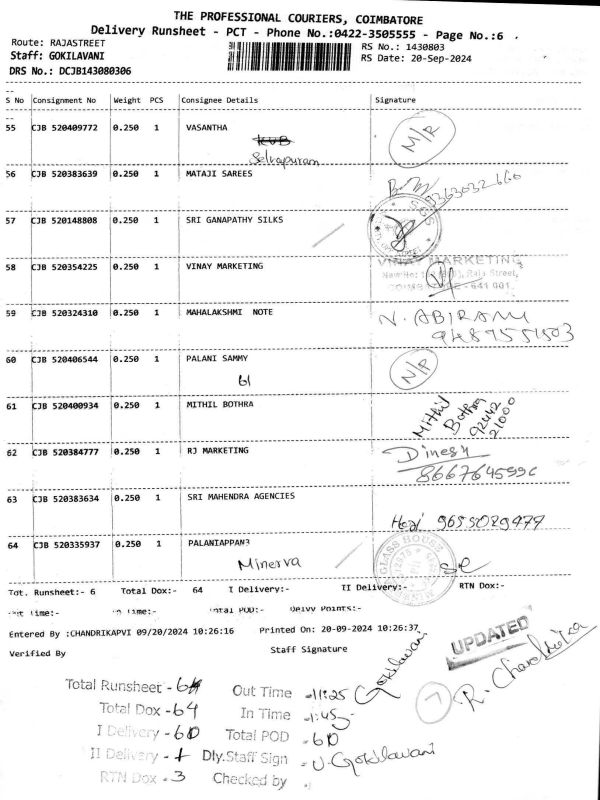 THE PROFESSIONAL COURIERS, COIMBATORE
Delivery Runsheet - PCT - Phone No.:0422-3505555 - Page No.:6
Route: RAJASTREET
RS No.: 1430803
Staff: GOKILAVANI
RS Date: 20-Sep-2024
DRS No.: DCJB143080306
S No Consignment No Weight PCS Consignee Details Signature
55 CJB 520409772 0.250 1 VASANTHA
KVB
Selvapuram
M/R
56 CJB 520383639 0.250 1 MATAJI SAREES
9363032660
57 CJB 520148808 0.250 1 SRI GANAPATHY SILKS
SGS
58 CJB 520354225 0.250 1 VINAY MARKETING
VINAY MARKETING
Raja Street,
- 641 001.
59 CJB 520324310 0.250 1 MAHALAKSHMI NOTE
N. ABIRAMI
60 CJB 520406544 0.250 1 PALANI SAMMY
bl
N/R
61 CJB 520400934 0.250 1 MITHIL BOTHRA
Mithil
Bothra
92442
21000
62 CJB 520384777 0.250 1 RJ MARKETING
Dinesh
63 CJB 520383634 0.250 1 SRI MAHENDRA AGENCIES
9655029477
64 CJB 520335937 0.250 1 PALANIAPPAN3
Minerva
GLASS HOUSE
Tot. Runsheet:- 6 Total Dox:- 64 I Delivery:- II Delivery:- RTN Dox:-
Out Time:- In Time:- Total POD:- Delvv Points:-
Entered By :CHANDRIKAPVI 09/20/2024 10:26:16 Printed On: 20-09-2024 10:26:37
Verified By Staff Signature
UPDATED
R. Chandrika
7
Gokilavani
Total Runsheet - 64 Out Time - 11:25
Total Dox - 64 In Time - 1:45
I Delivery - 60 Total POD - 60
II Delivery - 1 Dly.Staff Sign - U. Gokilavani
RTN Dox - 3 Checked by